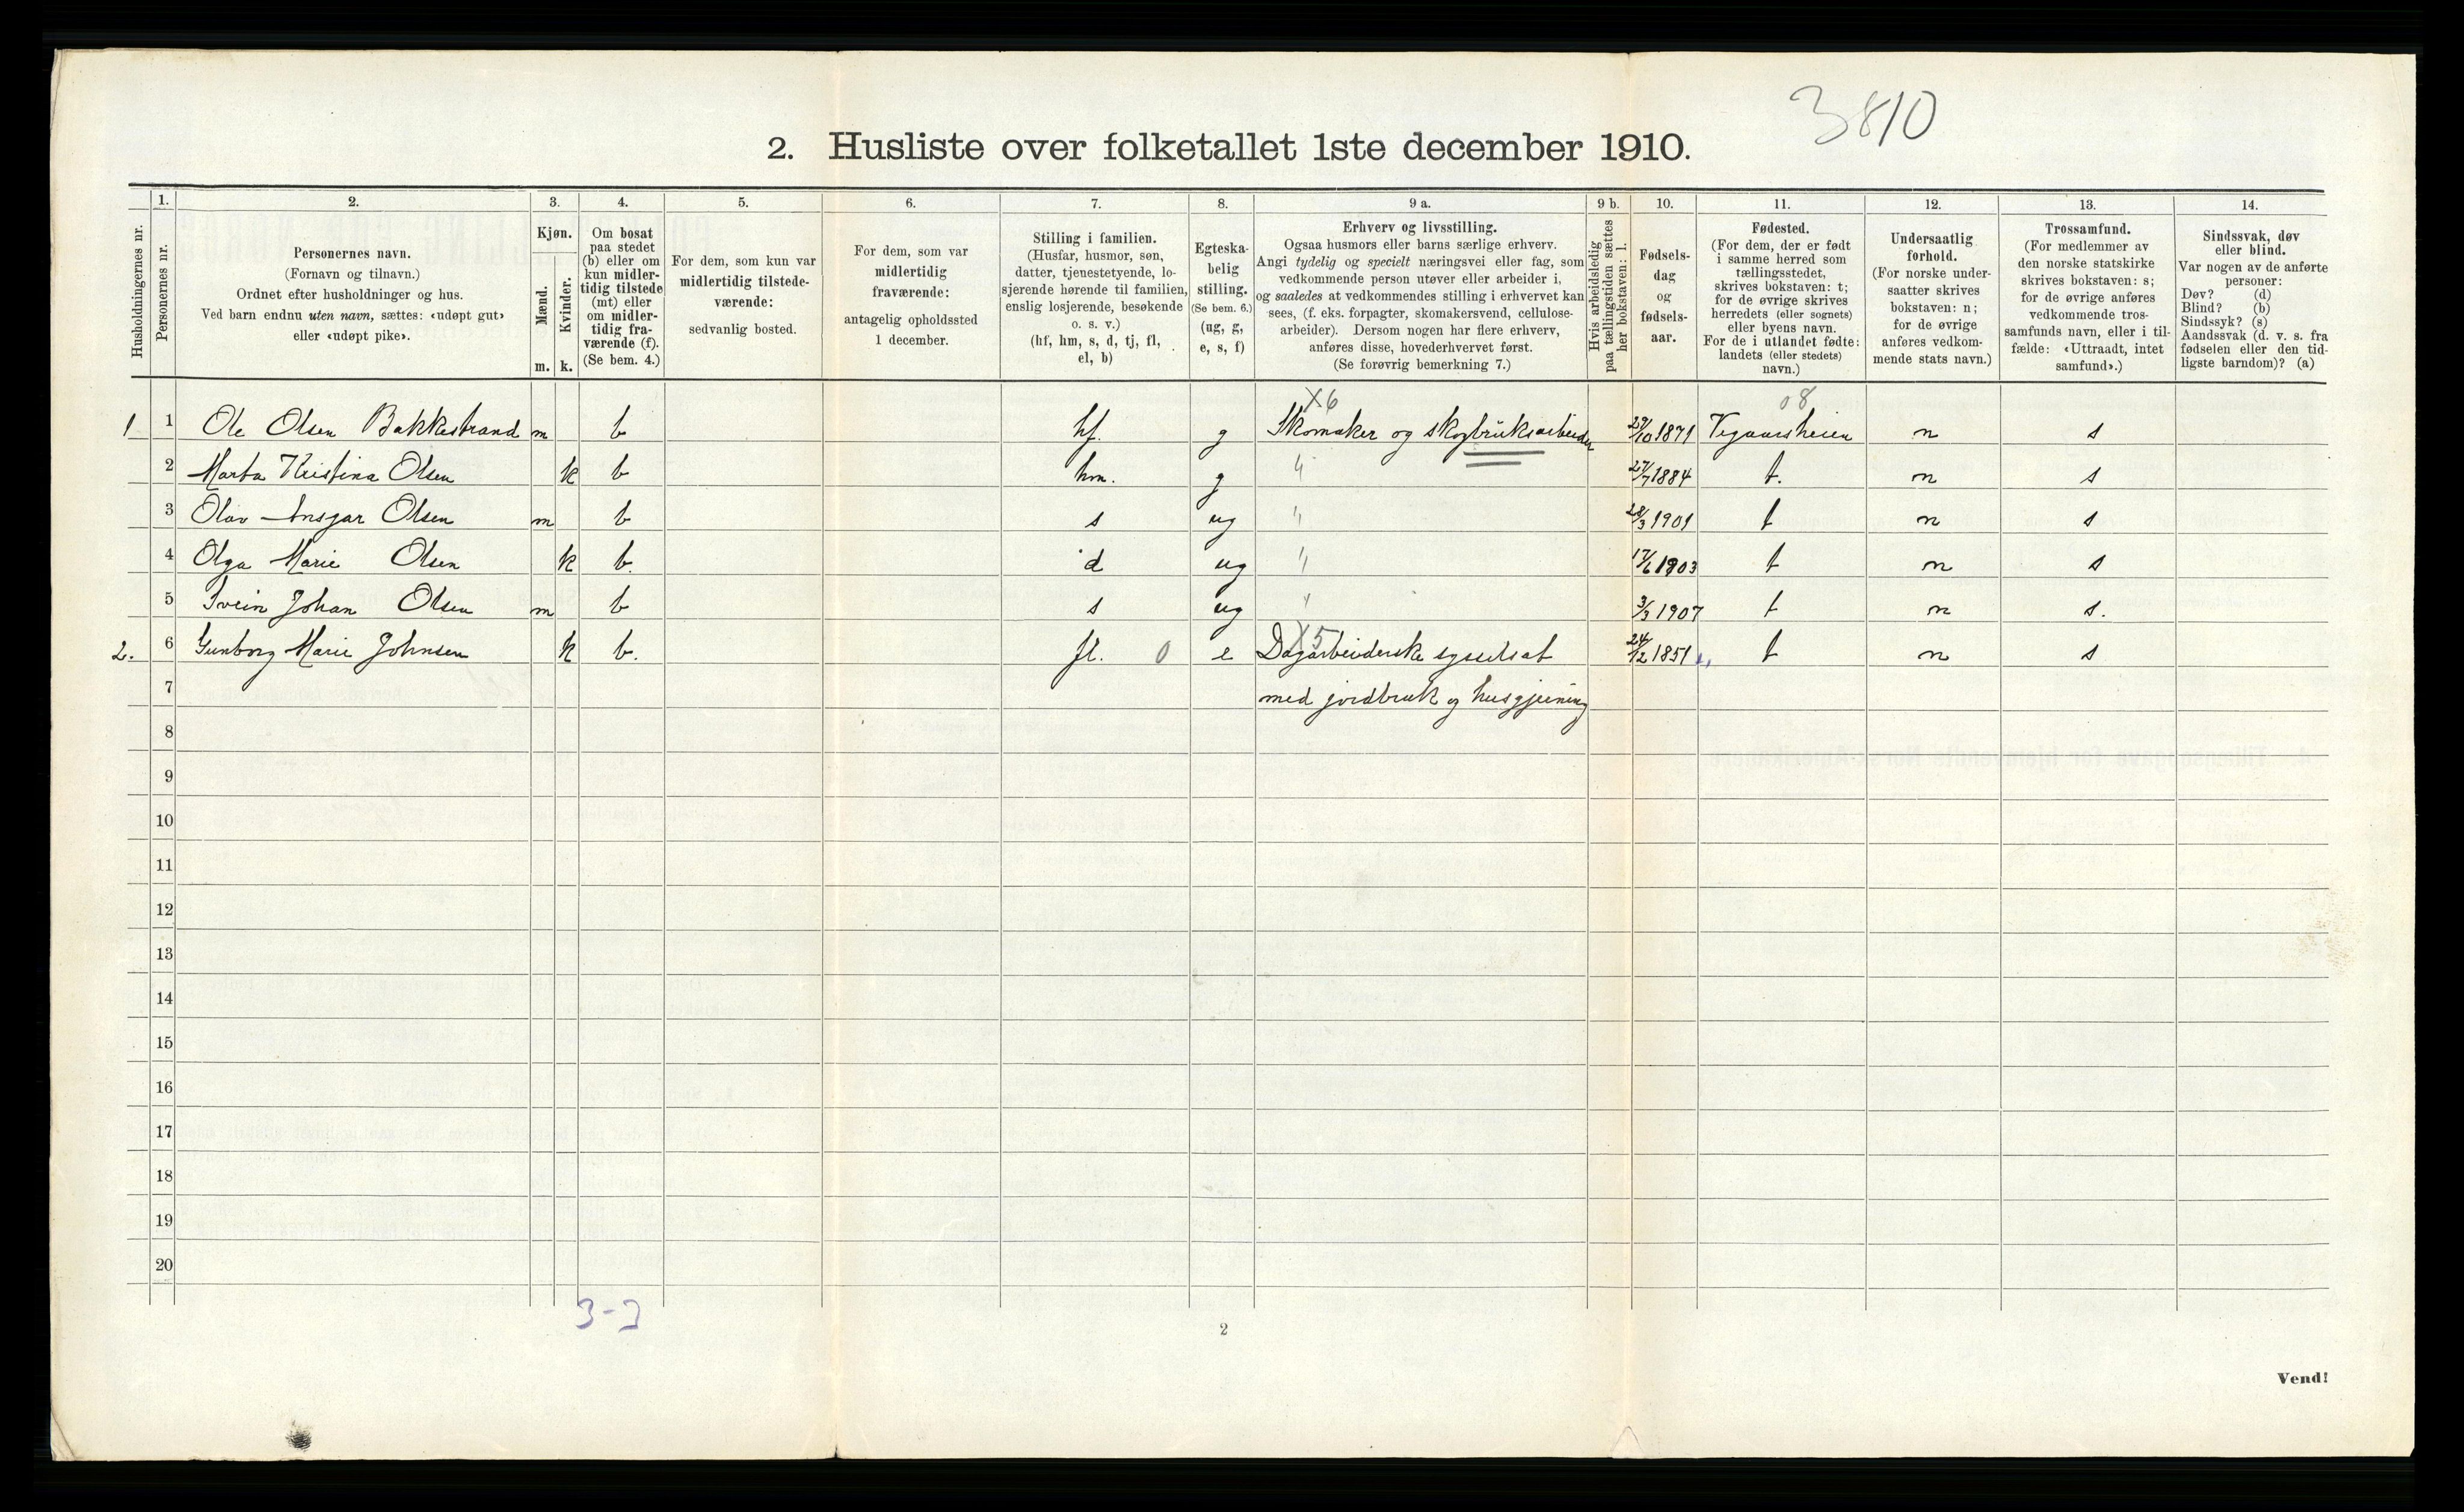 3810
2. Husliste over folketallet 1ste december 1910.
Husholdningernes nr.
1.
Personernes nr.
2.
Personernes navn.
(Fornavn og tilnavn.)
Ordnet efter husholdninger og hus.
Ved barn endnu uten navn, sættes: «udøpt gut»
eller «udøpt pike».
3.
Kjøn.
Mænd.
Kvinder.
m. k.
4.
Om bosat
paa stedet
(b) eller om
kun midler-
tidig tilstede
(mt) eller
om midler-
tidig fra-
værende (f).
(Se bem. 4.)
5.
For dem, som kun var
midlertidig tilstede-
værende:
sedvanlig bosted.
6.
For dem, som var
midlertidig
fraværende:
antagelig opholdssted
1 december.
7.
Stilling i familien.
(Husfar, husmor, søn,
datter, tjenestetyende, lo-
sjerende hørende til familien,
enslig losjerende, besøkende
o. s. v.)
(hf, hm, s, d, tj, fl,
el, b)
8.
Egteska-
belig
stilling.
(Se bem. 6.)
(ug, g,
e, s, f)
9 a.
Erhverv og livsstilling.
Ogsaa husmors eller barns særlige erhverv.
Angi tydelig og specielt næringsvei eller fag, som
vedkommende person utøver eller arbeider i,
og saaledes at vedkommendes stilling i erhvervet kan
sees, (f. eks. forpagter, skomakersvend, cellulose-
arbeider). Dersom nogen har flere erhverv,
anføres disse, hovederhvervet først.
(Se forøvrig bemerkning 7.)
9 b.
Hvis arbeidsledig
paa tællingstiden sættes
her bokstaven: l.
10.
Fødsels-
dag
og
fødsels-
aar.
11.
Fødested.
(For dem, der er født
i samme herred som
tællingsstedet,
skrives bokstaven: t;
for de øvrige skrives
herredets (eller sognets)
eller byens navn.
For de i utlandet fødte:
landets (eller stedets)
navn.)
12.
Undersaatlig
forhold.
(For norske under-
saatter skrives
bokstaven: n;
for de øvrige
anføres vedkom-
mende stats navn.)
13.
Trossamfund.
(For medlemmer av
den norske statskirke
skrives bokstaven: s;
for de øvrige anføres
vedkommende tros-
samfunds navn, eller i til-
fælde: «Uttraadt, intet
samfund».)
14.
Sindssvak, døv
eller blind.
Var nogen av de anførte
personer:
Døv? (d)
Blind? (b)
Sindssyk? (s)
Aandssvak (d. v. s. fra
fødselen eller den tid-
ligste barndom)? (a)
X6 08
1 1 Ole Olsen Bakkestrand m b hf. g Skomaker og skogbruksarbeider 29/10 1871 Vegaarsheien n s
2 Marta Kristina Olsen k b hm. g " 27/7 1884 t. n s
3 Olav Ansgar Olsen m b s ug " 28/3 1901 t n s
4 Olga Marie Olsen k b. d ug " 17/6 1903 t n s
5 Svein Johan Olsen m b s ug " 3/3 1907 t n s.
X5
2. 6 Gunborg Marie Johnsen k b. fl. 0 e Dagarbeiderske sysselsat 24/12 1851 t n s
7 med jordbruk og husgjerning
8
9
10
11
12
13
14
15
16
17
18
19
20
3-3
2
Vend!